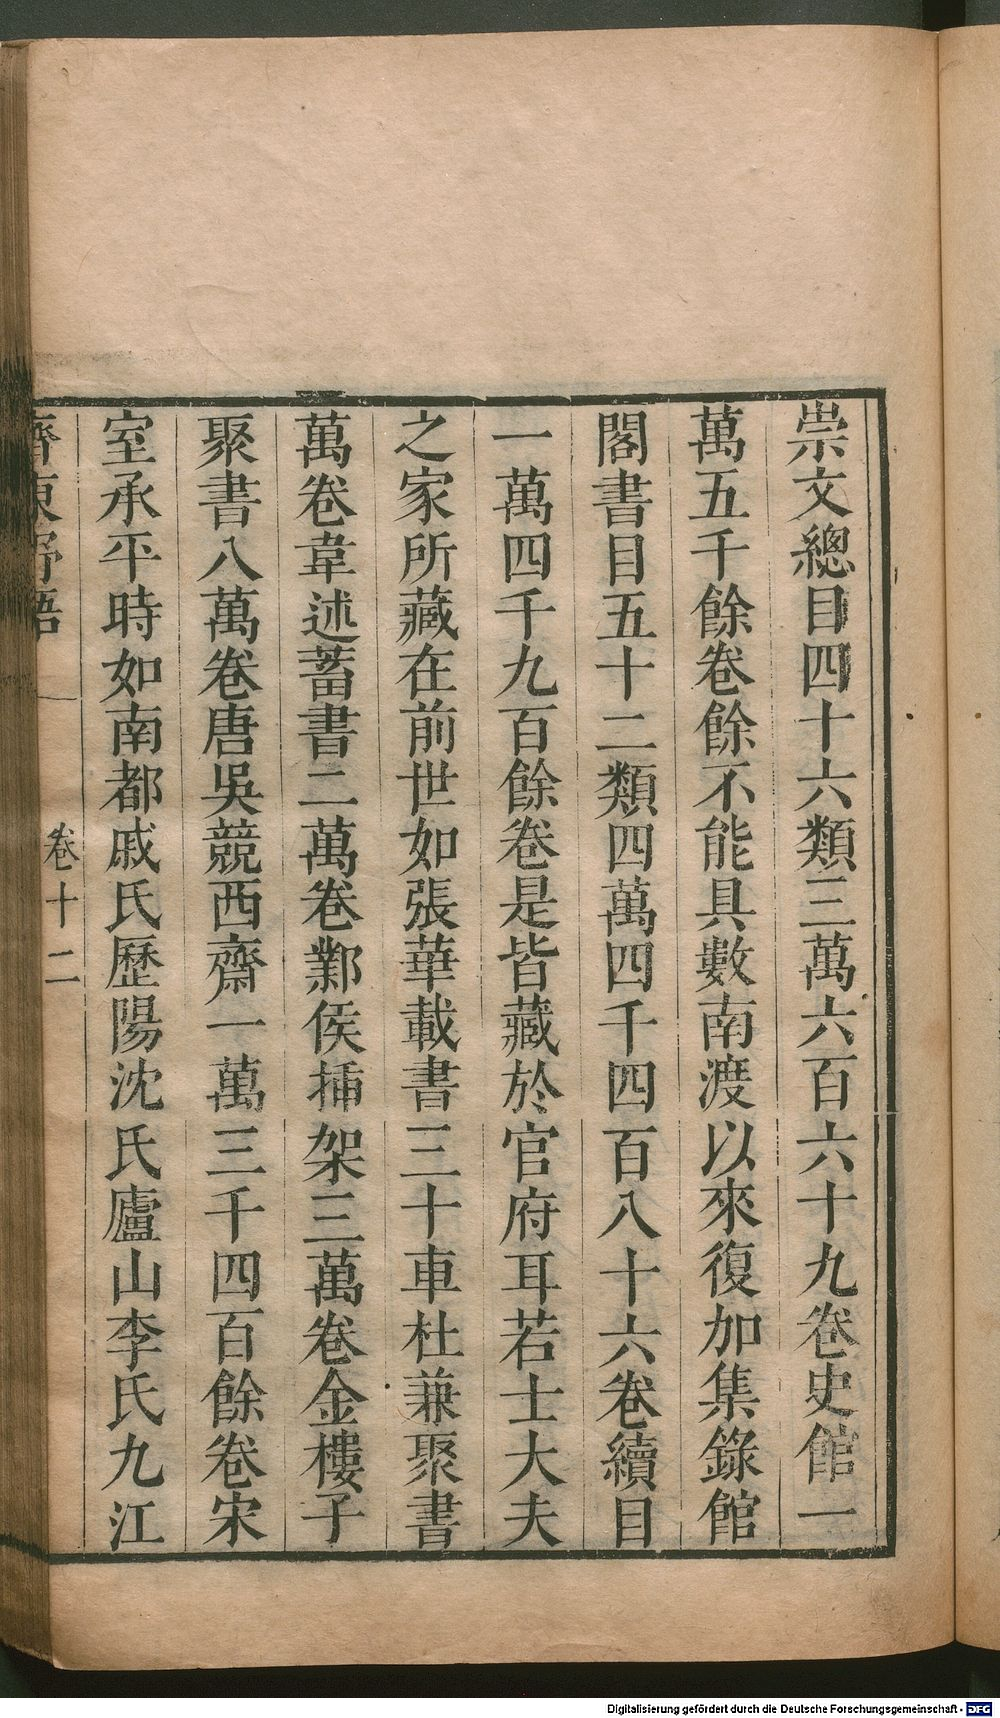 崇文總目四十六類三萬六百六十九卷史館一
萬五千餘卷餘不能具數南渡以來復加集錄館
閣書目五十二類四萬四千四百八十六卷續目
一萬四千九百餘卷是皆藏於官府耳若士大夫
之家所藏在前世如張華載書三十車杜兼聚書
萬卷韋述蓄書二萬卷鄴侯插架三萬卷金樓子
聚書八萬卷唐吳競西齋一萬三千四百餘卷宋
室承平時如南都戚氏歷陽沈氏廬山李氏九江
齊東野語
卷十二
Digitalisierung gefördert durch die Deutsche Forschungsgemeinschaft - DFG